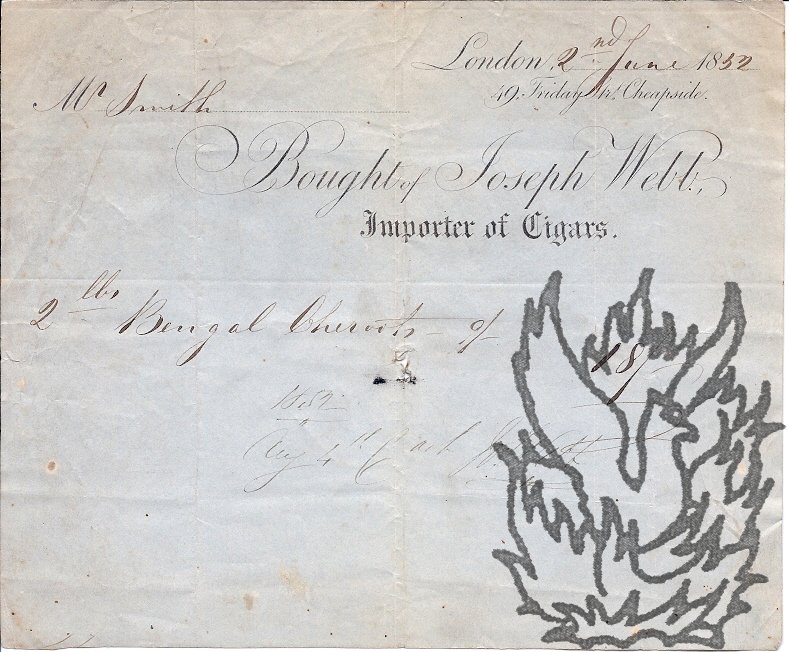 London 2nd June 1852
49, Friday St. Cheapside.
Mr Smith
Bought of Joseph Webb,
Importer of Cigars.
2 lbs Bengal Cheroots 9/ 18/
1852
Aug 4th Cash